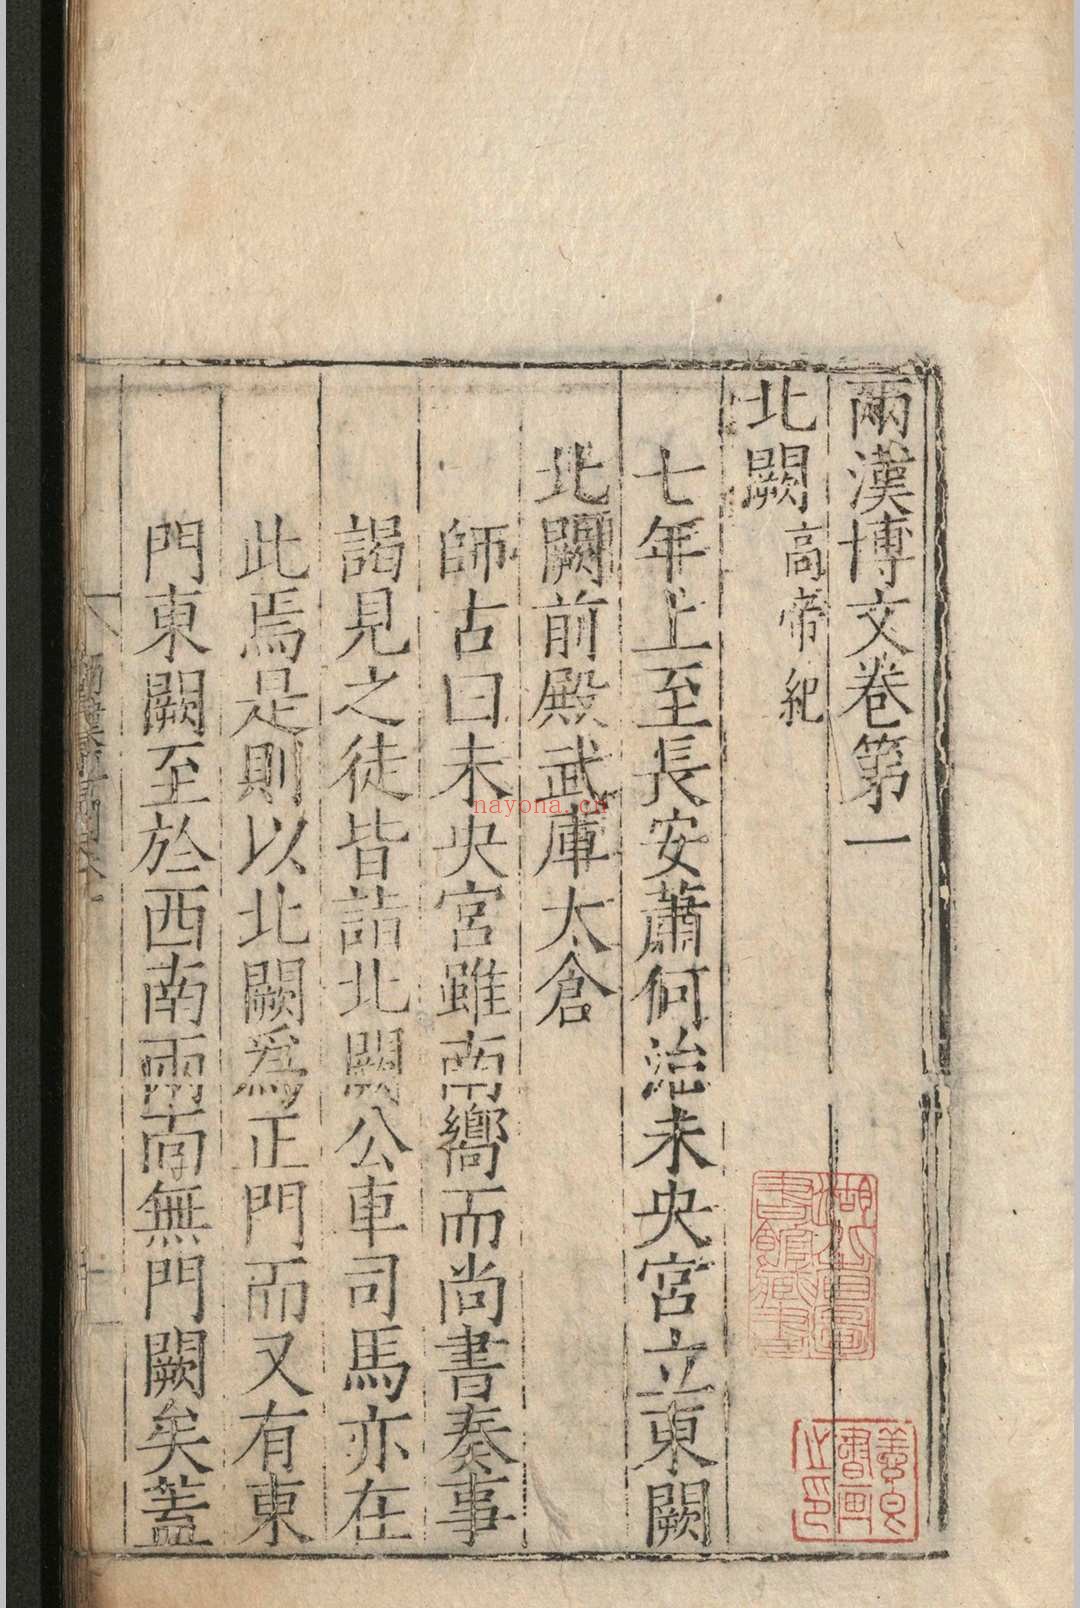 兩漢博文卷第一
北闕高帝紀
七年上至長安蕭何治未央宮立東闕
北闕前殿武庫太倉
師古曰未央宮雖南嚮而尚書奏事
謁見之徒皆詣北闕公車司馬亦在
此焉是則以北闕爲正門而又有東
門東闕至於西南兩面無門闕矣蓋
nayona.cn